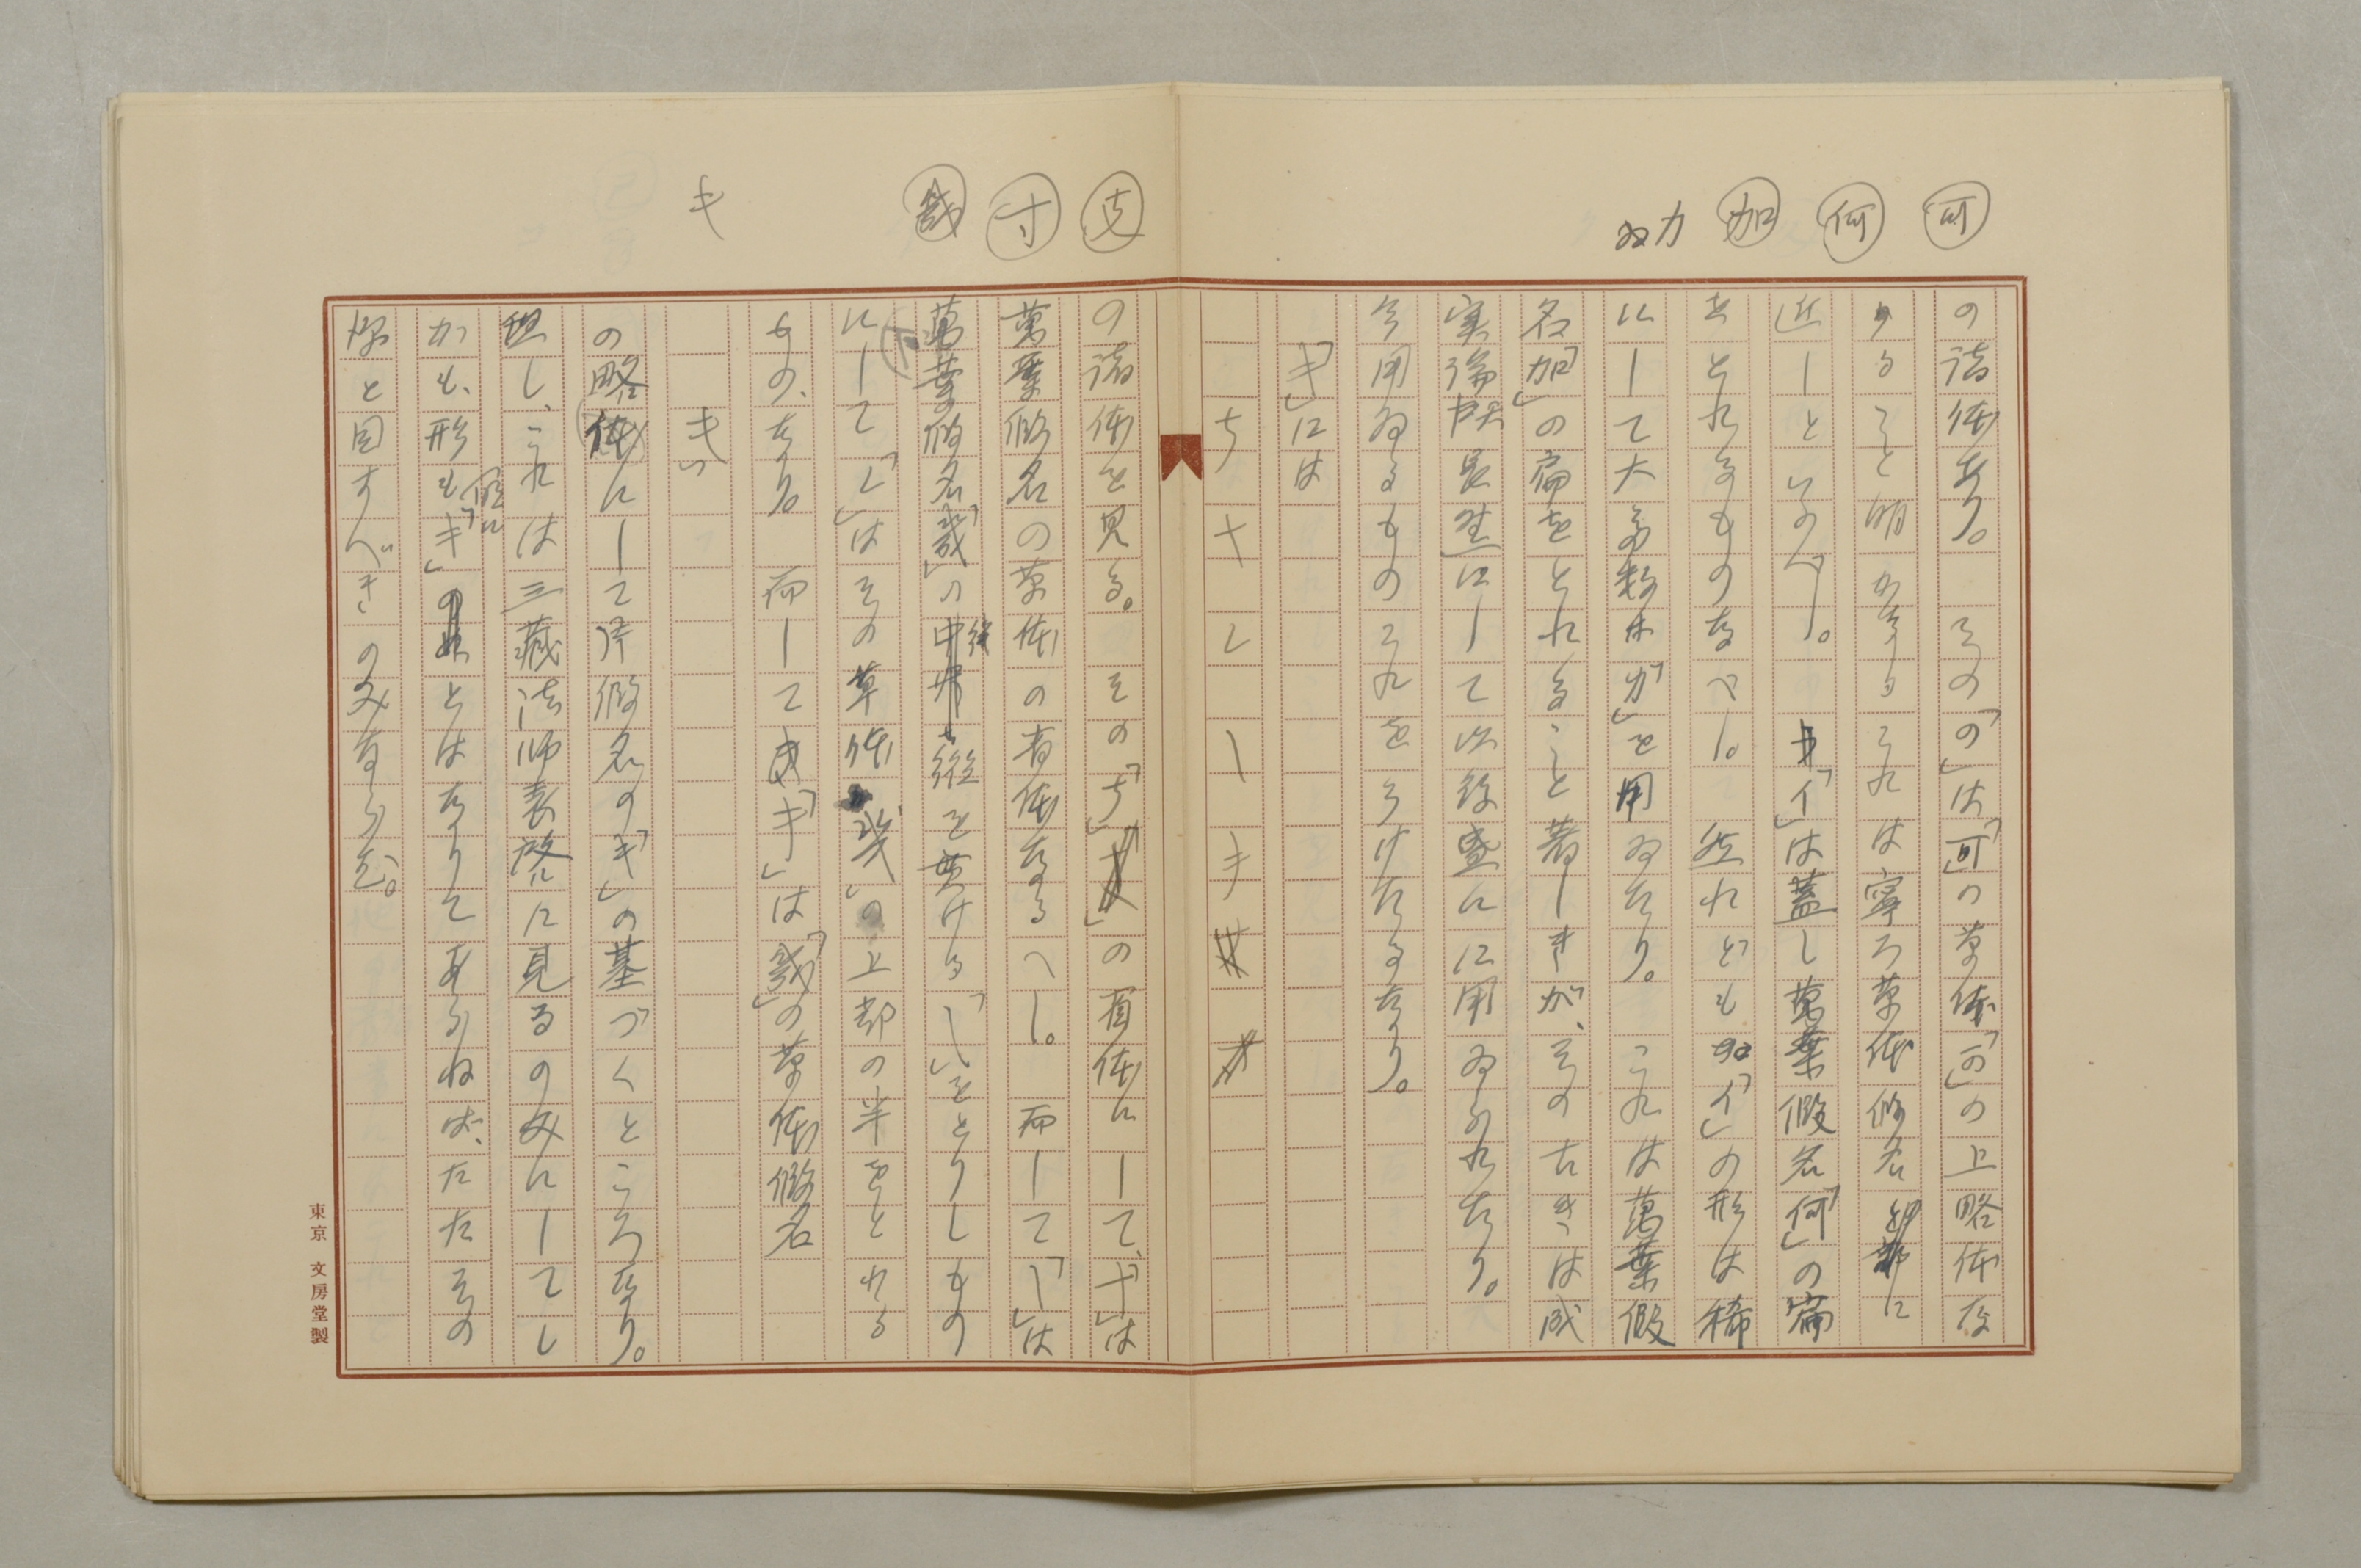 可 何 加 カ
の諸体あり。 その「の」は「可」の草体「の」の上略体な
ること明かなり これは寧ろ草体仮名 に
近しといふべし。 「イ」は蓋し萬葉假名「何」の篇
をとれるものなべし。 然れども 「イ」の形は稀
にして大多数は「カ」を用ゐたり。 これは萬葉假
名「加」の扁をとれること著しきが、その古きは成
実論天長点にして以後盛に用ゐられたり。
今用ゐるものこれをうけたるなり。
「キ」には
ち 十 レ 丨 キ
支 寸 幾 キ
の諸体を見る。 その「ち」 の眞体にして、「十」は
萬葉假名の草体の省体なるべし。 而して「丨」は
萬葉假名「幾」の 縦を貫ける「丨」をとりしもの
にして「レ」はその草体 「幾」の上部の半をとれる
もの、なり。 而して 「キ」は「幾」の草体假名
キ」
の略体にして片假名の「キ」の基づくところなり。
但し、これは三藏法師表啓に見るのみにしてし
かも、形も「キ」 假に とはなりてあらねば、ただその
源と目すべきのみならむ。
東京 文房堂製